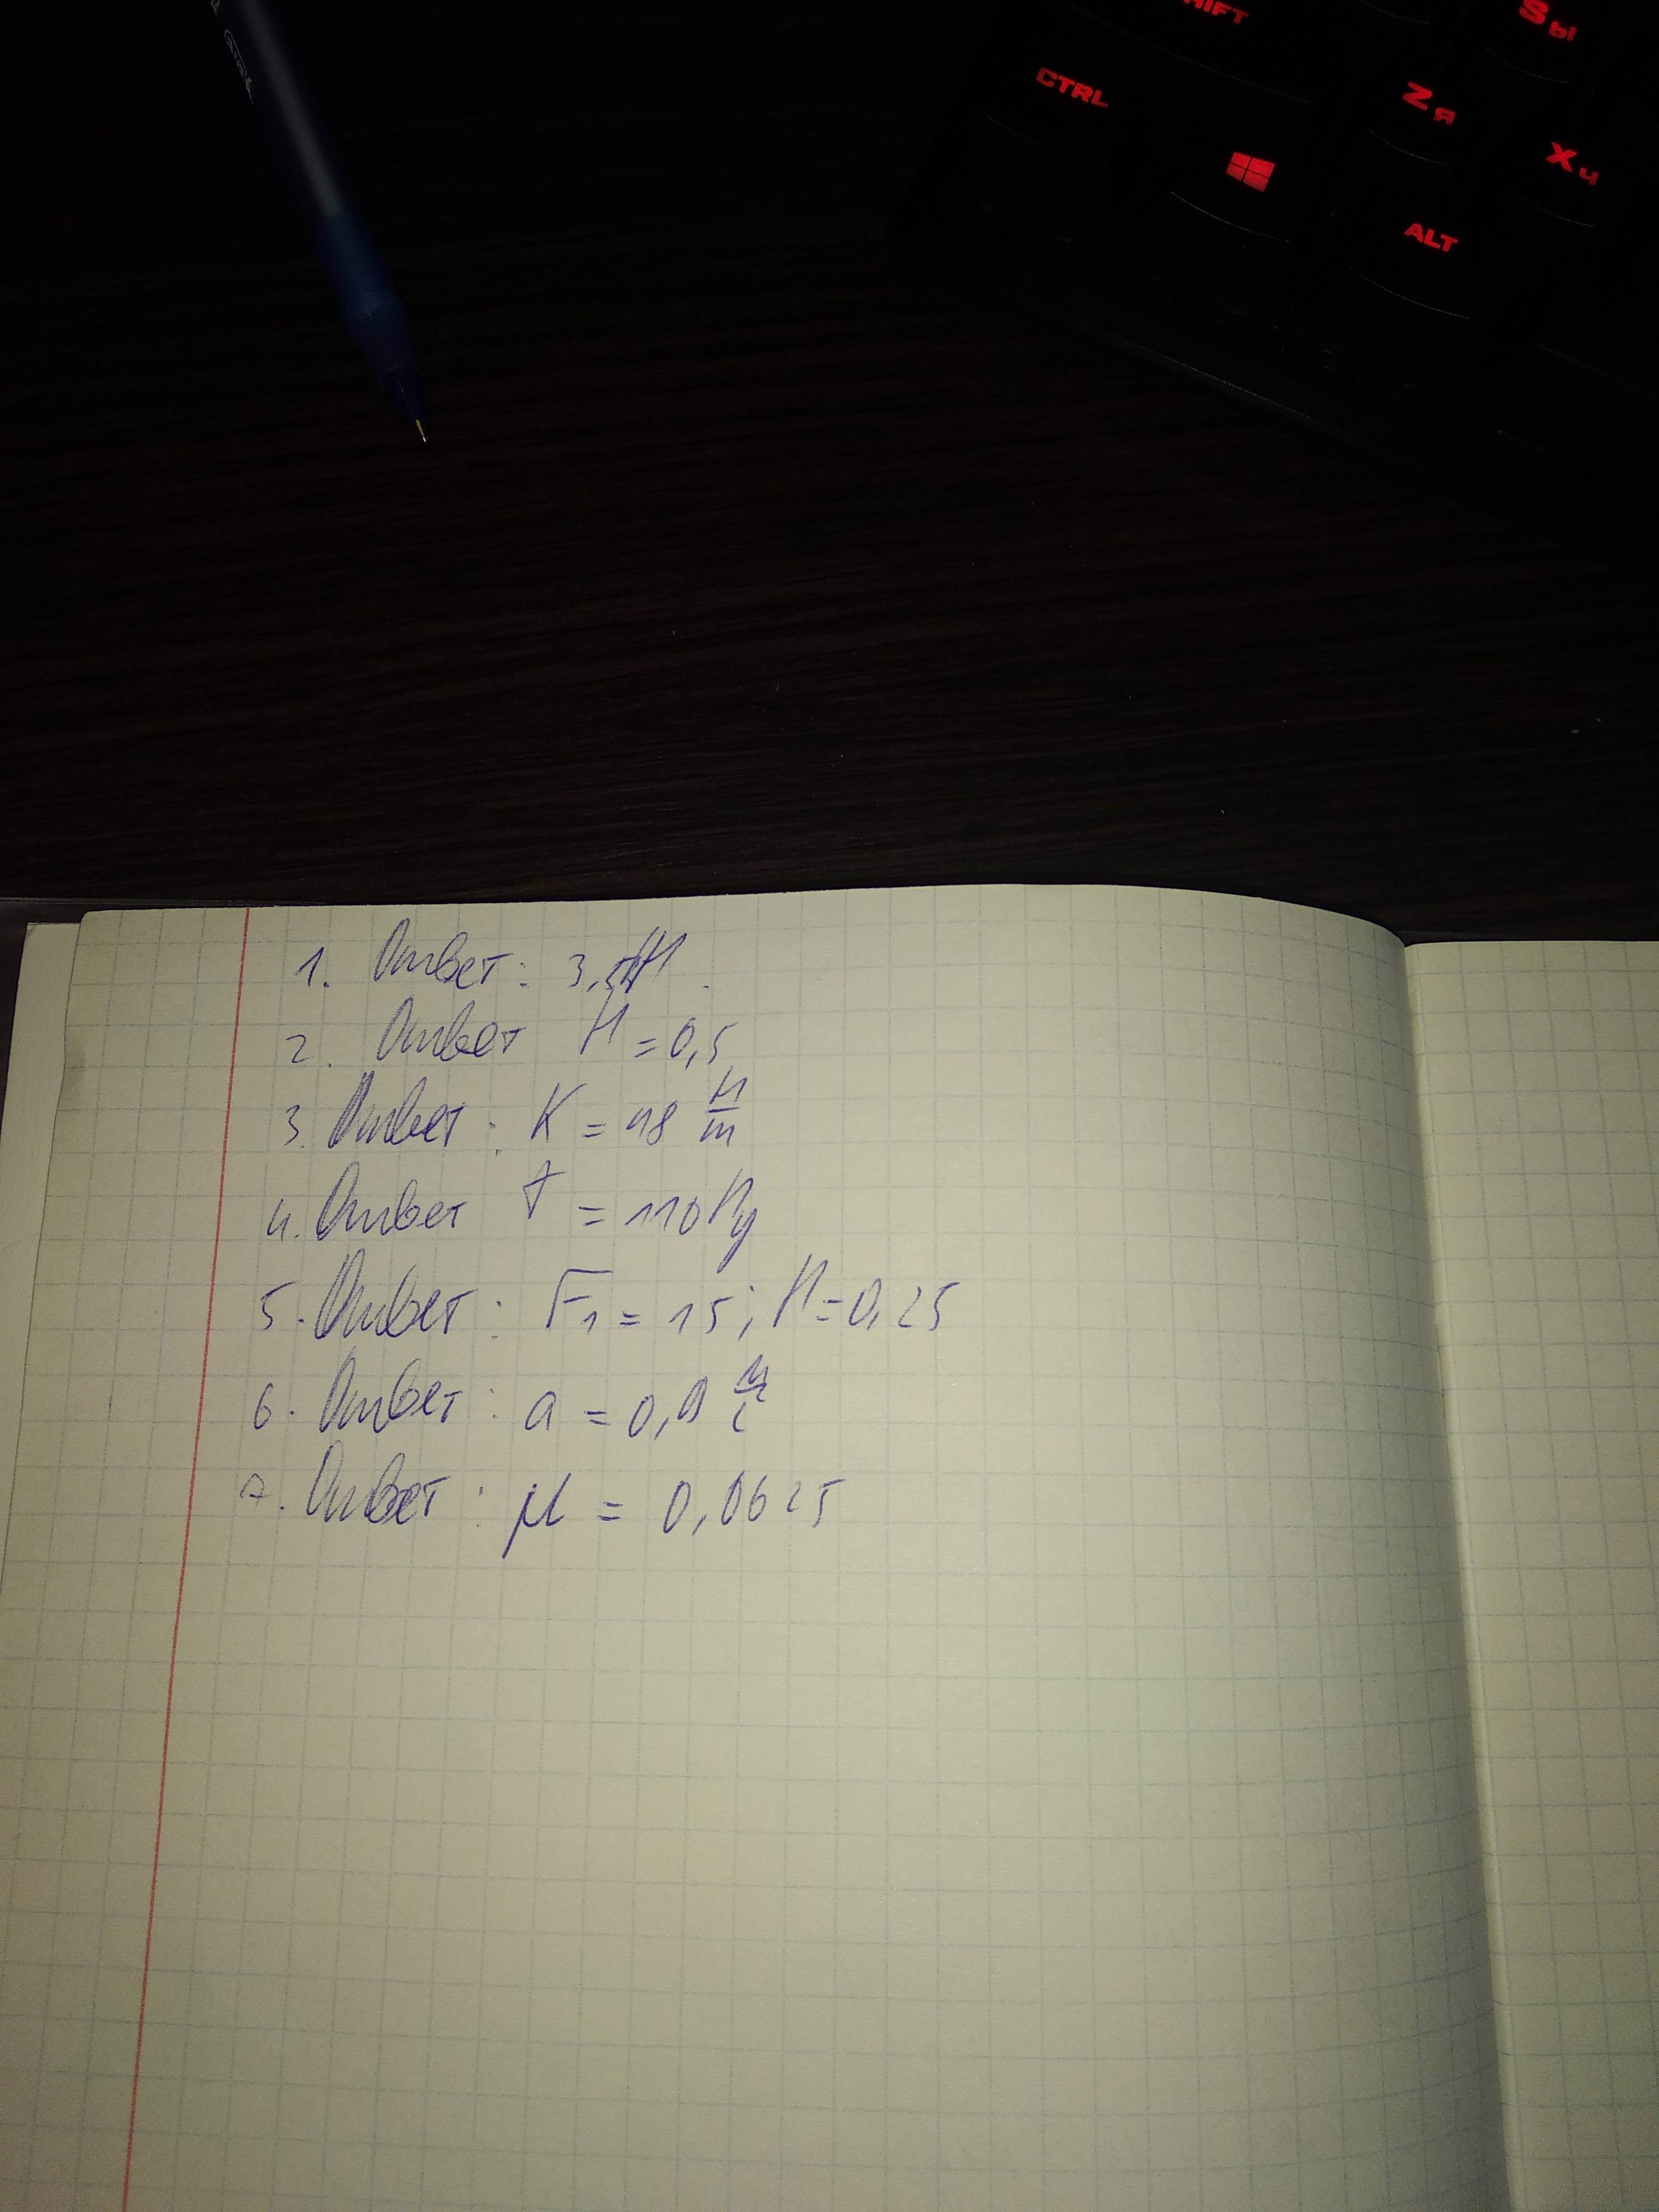 HIFT
S Ы
CTRL
Z Я
X Ч
ALT
1. Ответ: 3,5 Н.
2. Ответ Н = 0,5
3. Ответ: К = 18 Н/m
4. Ответ = 110
5. Ответ: F1 = 15; Н = 0,25
6. Ответ: a = 0,
7. Ответ: μ = 0,0625